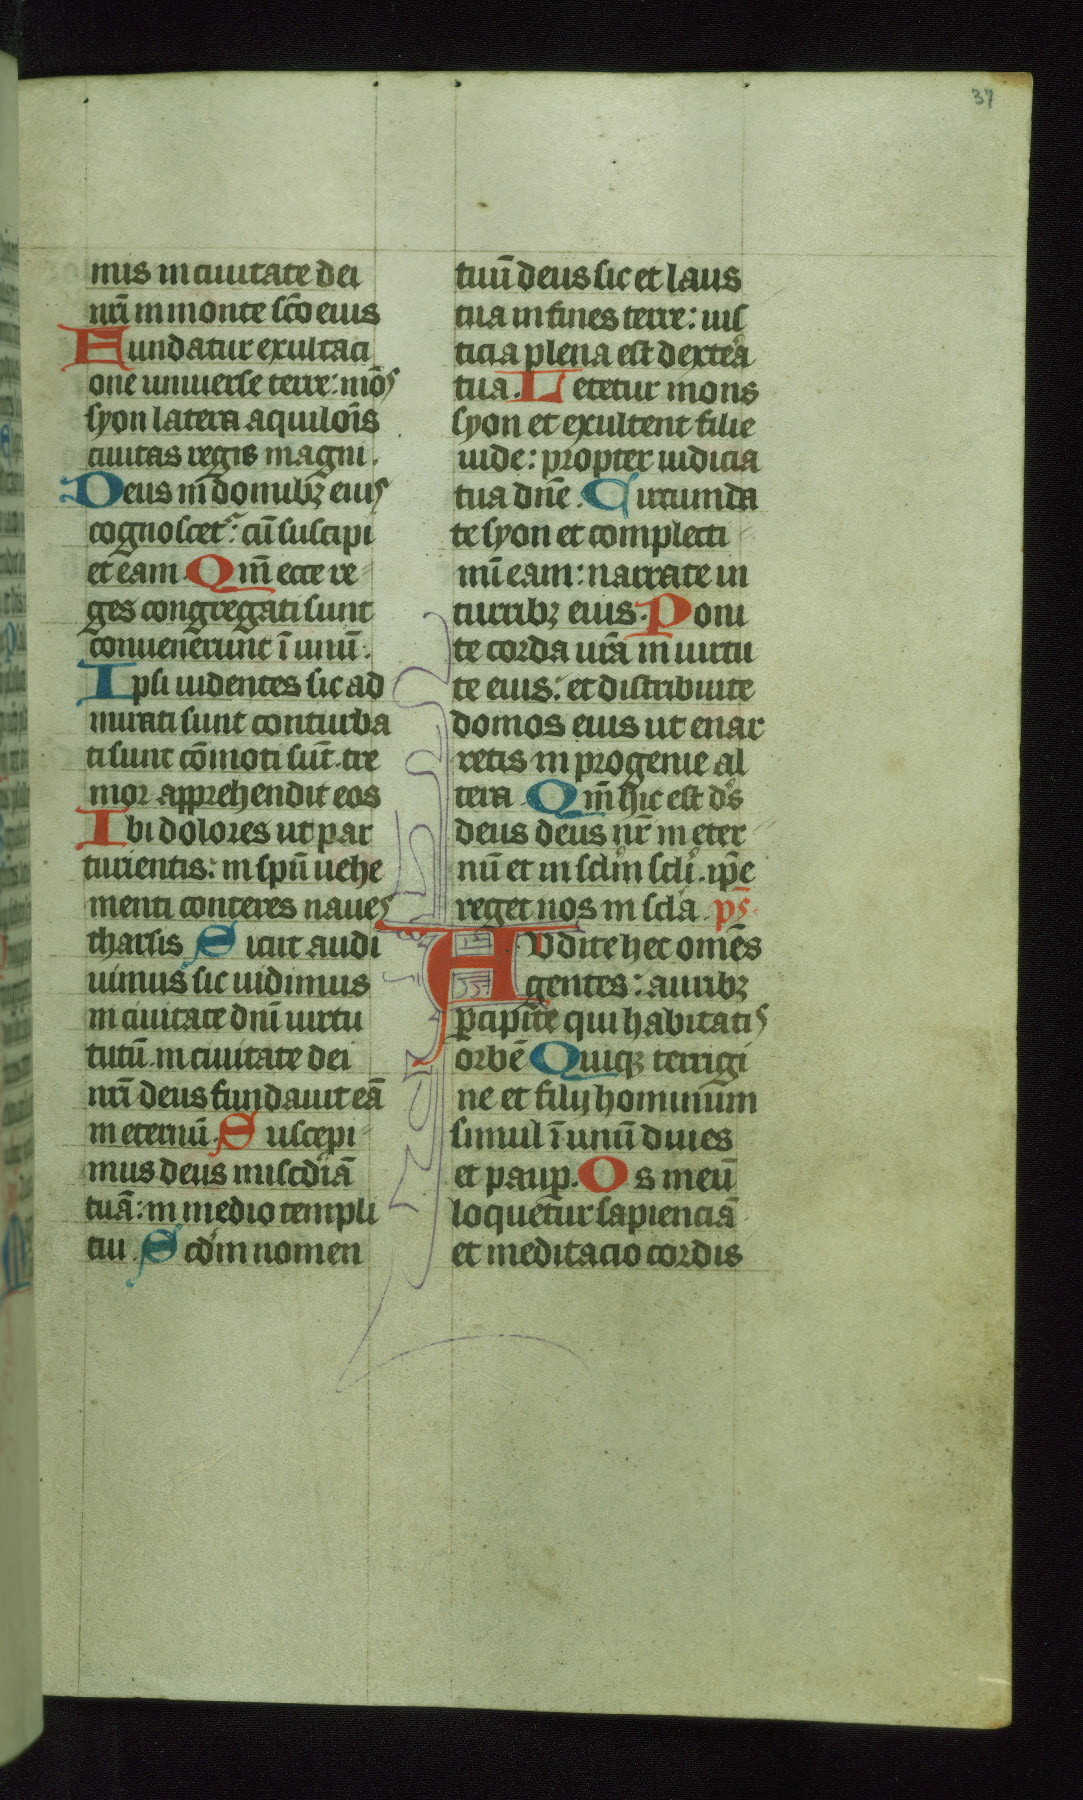 37
mis in ciuitate dei
nr̄i in monte sc̄o eius
Fundatur exultaci
one uniuerse terre: mōs
syon latera aquilonis
ciuitas regis magni.
Deus in domibꝫ eius
cognoscet᷑: cū suscipi
et eam. Qm̄ ecce re
ges congregati sunt
conuenerunt ī unū.
Ipsi uidentes sic ad
mirati sunt conturba
ti sunt cōmoti sūt. tre
mor apprehendit eos
Ibi dolores ut par
turientis: in spū uehe
menti conteres naues
tharsis Sicut audi
uimus sic uidimus
in ciuitate dnī uirtu
tutū. in ciuitate dei
nr̄i deus fundauit eā
in eternū. Suscepi
mus deus misc̄diā
tuā: in medio templi
tui. Scdm̄ nomen
tuū deus sic et laus
tua in fines terre: ius
ticia plena est dextera
tua. Letetur mons
syon et exultent filie
iude: propter iudicia
tua dn̄e. Circumda
te syon et complecti
mī eam: narrate in
turribꝫ eius. Poni
te corda ur̄a in uirtu
te eius: et distribuite
domos eius ut enar
retis in progenie al
tera Qm̄ hic est ds̄
deus deus nr̄ in eter
nū et in sclm̄ scli. ip̄e
reget nos in scla. ps̄
AUdite hec om̄es
gentes: auribꝫ
ꝑcipite qui habitatis
orbē Quiqꝫ terrigi
ne et filij hominum
simul ī unū diues
et pauꝑ. Os meū
loquetur sapienciā
et meditacio cordis